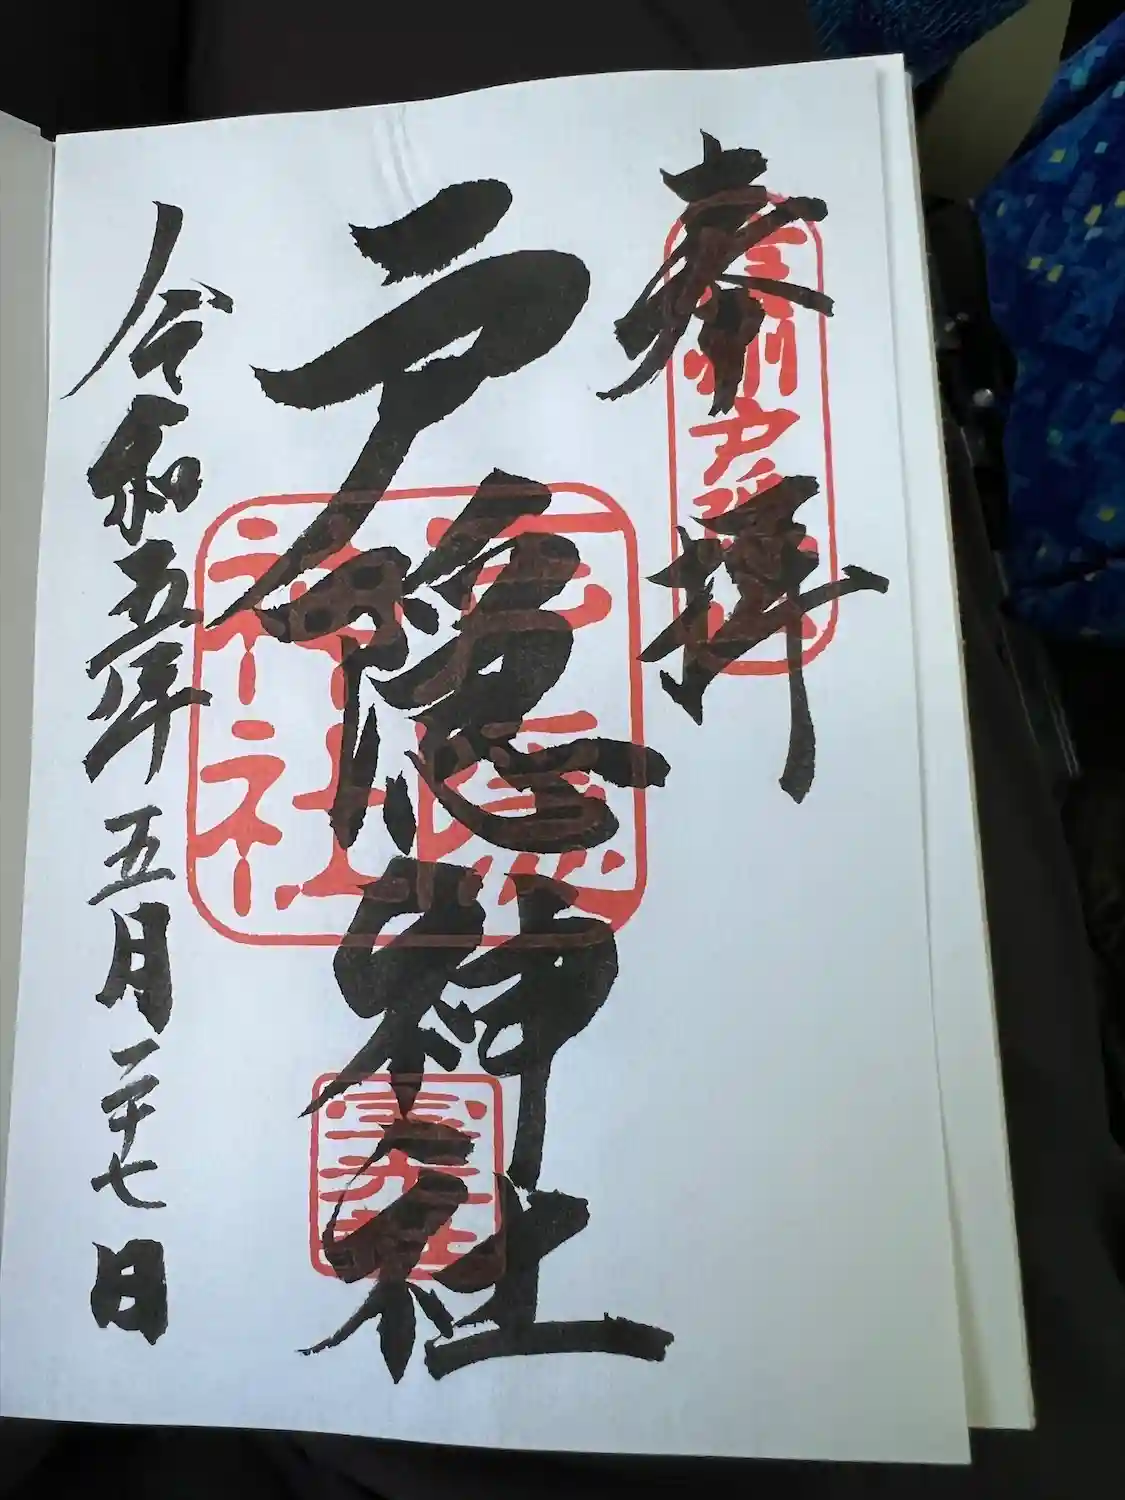 奉拝
信州戸隠山
戸隠神社
戸隠神社
令和五年五月二十七日